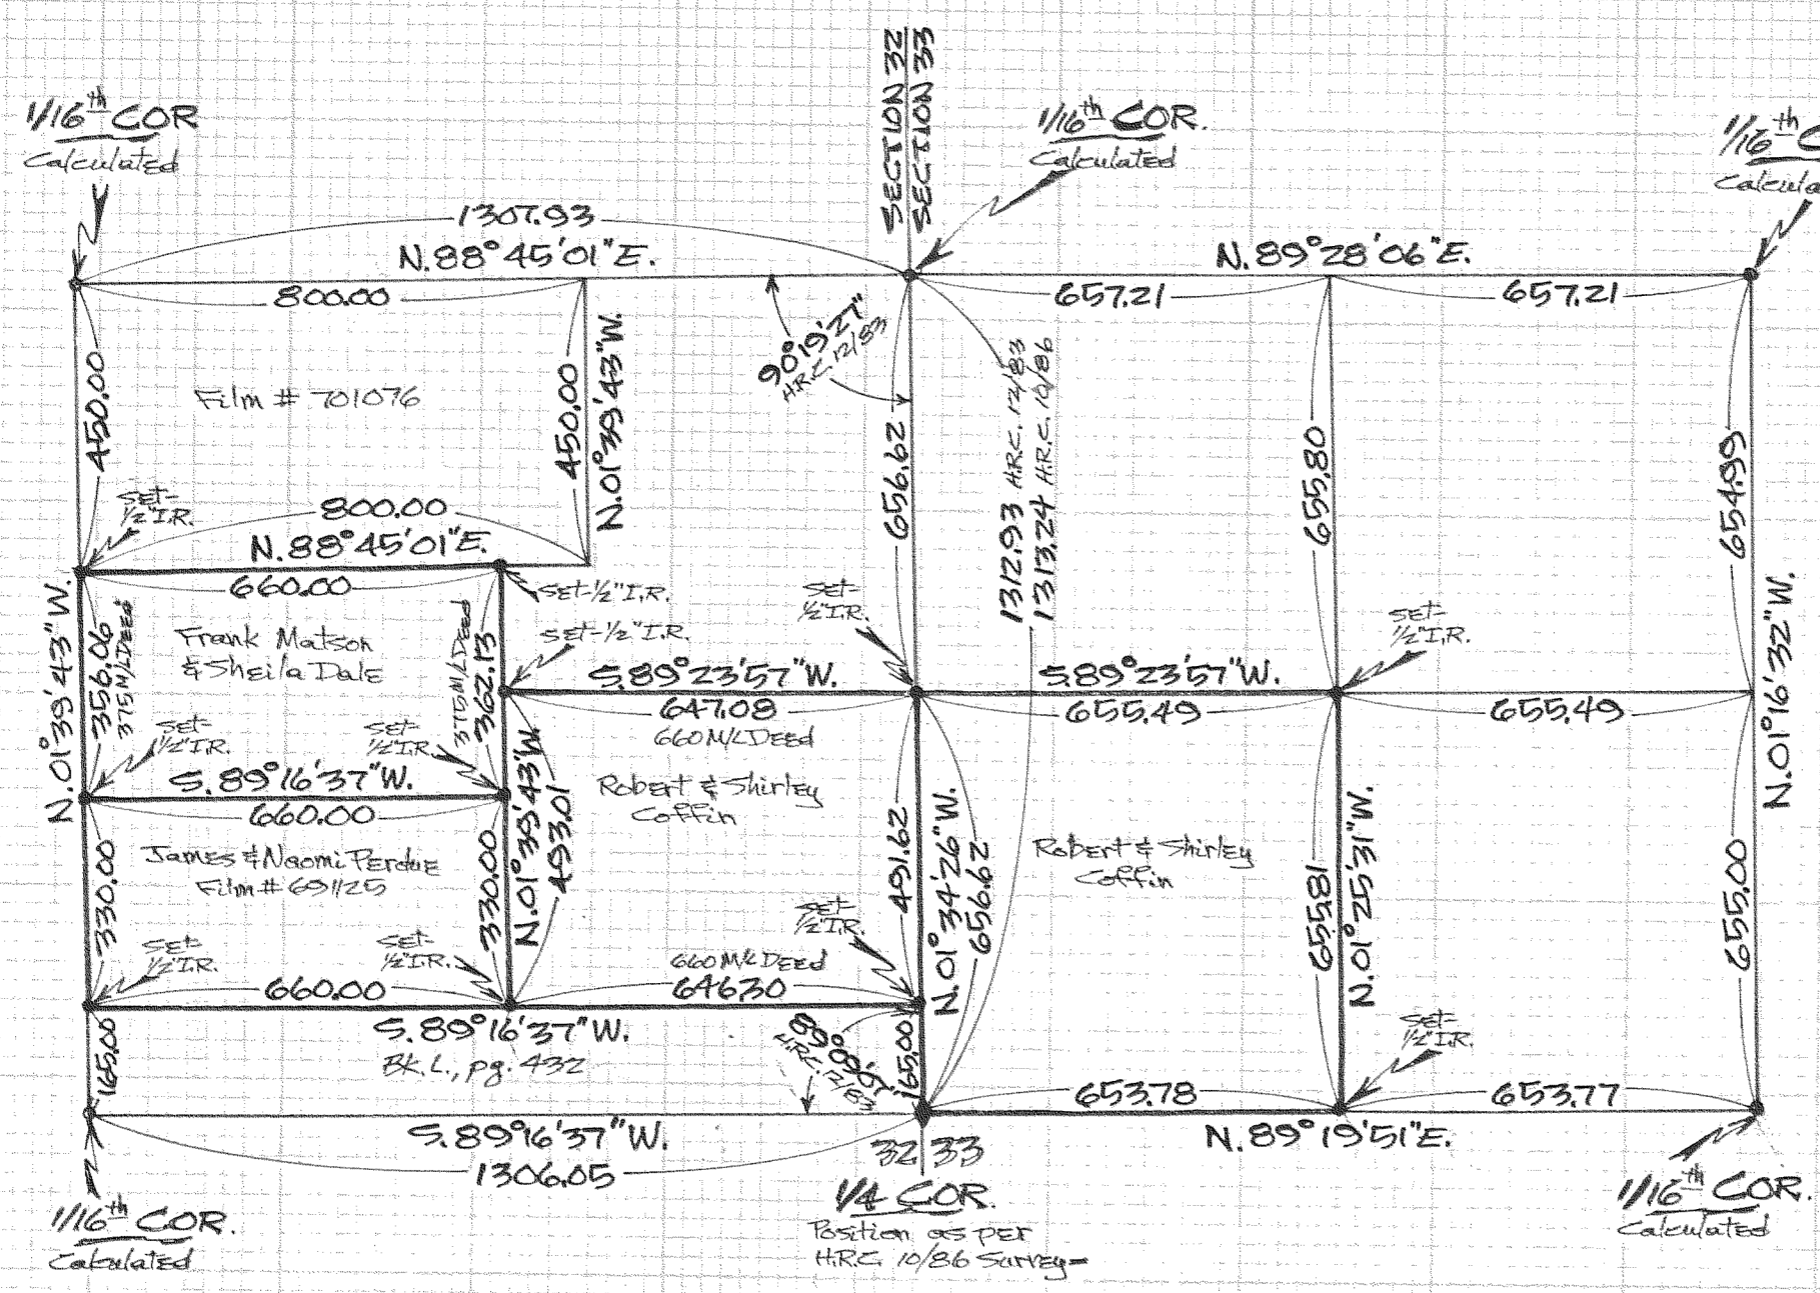 SECTION 32
SECTION 33
1/16th COR
Calculated
1/16th COR.
Calculated
1/16th C
Calcula
1307.93
N.88°45'01"E.
800.00
N.89°28'06"E.
657.21
657.21
90°19'27"
H.R.C. 12/83
450.00
Film # 701076
450.00
N.01°39'43"W.
656.62
1312.93 H.R.C. 12/83
1313.24 H.R.C. 10/86
655.80
654.99
SET-
1/2" I.R.
800.00
N.88°45'01"E.
660.00
SET-1/2" I.R.
SET-1/2" I.R.
SET-
1/2" I.R.
SET-
1/2" I.R.
N.01°39'43"W.
356.06
375 M/L Deed
Frank Matson
& Sheila Dale
375 M/L Deed
362.13
S.89°23'57"W.
647.08
660 M/L Deed
S.89°23'57"W.
655.49
655.49
N.01°16'32"W.
SET-
1/2" I.R.
SET-
1/2" I.R.
S.89°16'37"W.
660.00
Robert & Shirley
Coffin
N.01°39'43"W.
493.01
491.62
N.01°34'26"W.
656.62
Robert & Shirley
Coffin
655.81
N.01°25'31"W.
655.00
330.00
James & Naomi Perdue
Film # 691125
330.00
SET-
1/2" I.R.
SET-
1/2" I.R.
SET-
1/2" I.R.
660.00
660 M/L Deed
646.30
S.89°16'37"W.
Bk. L., pg. 432
165.00
H.R.C. 12/83
165.00
SET-
1/2" I.R.
653.78
653.77
S.89°16'37"W.
1306.05
N.89°19'51"E.
32 33
1/4 COR.
Position as per
H.R.C. 10/86 Survey-
1/16th COR.
Calculated
1/16th COR.
Calculated